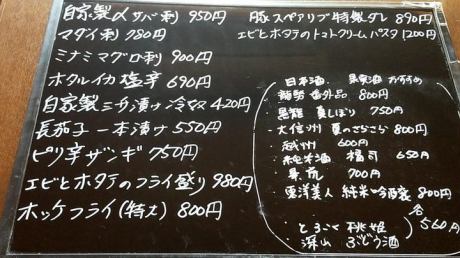 自家製〆サバ刺 950円
マダイ刺 980円
ミナミマグロ刺 900円
ホタルイカ塩辛 690円
自家製三升漬け冷奴 420円
長茄子一本漬け 550円
ピリ辛ザンギ 750円
エビとホタテのフライ盛り 980円
ホッケフライ(特大) 800円
豚スペアリブ特製ダレ 890円
エビとホタテのトマトクリームパスタ 1200円
日本酒 果実酒 おすすめ
龍勢 番外品 800円
黒龍 夏しぼり 750円
大信州 夏のさらさら 800円
越州 600円
純米酒 福司 650円
700円
東洋美人 純米吟醸 800円
とろこく 桃姫
深山 ぶどう酒
各560円